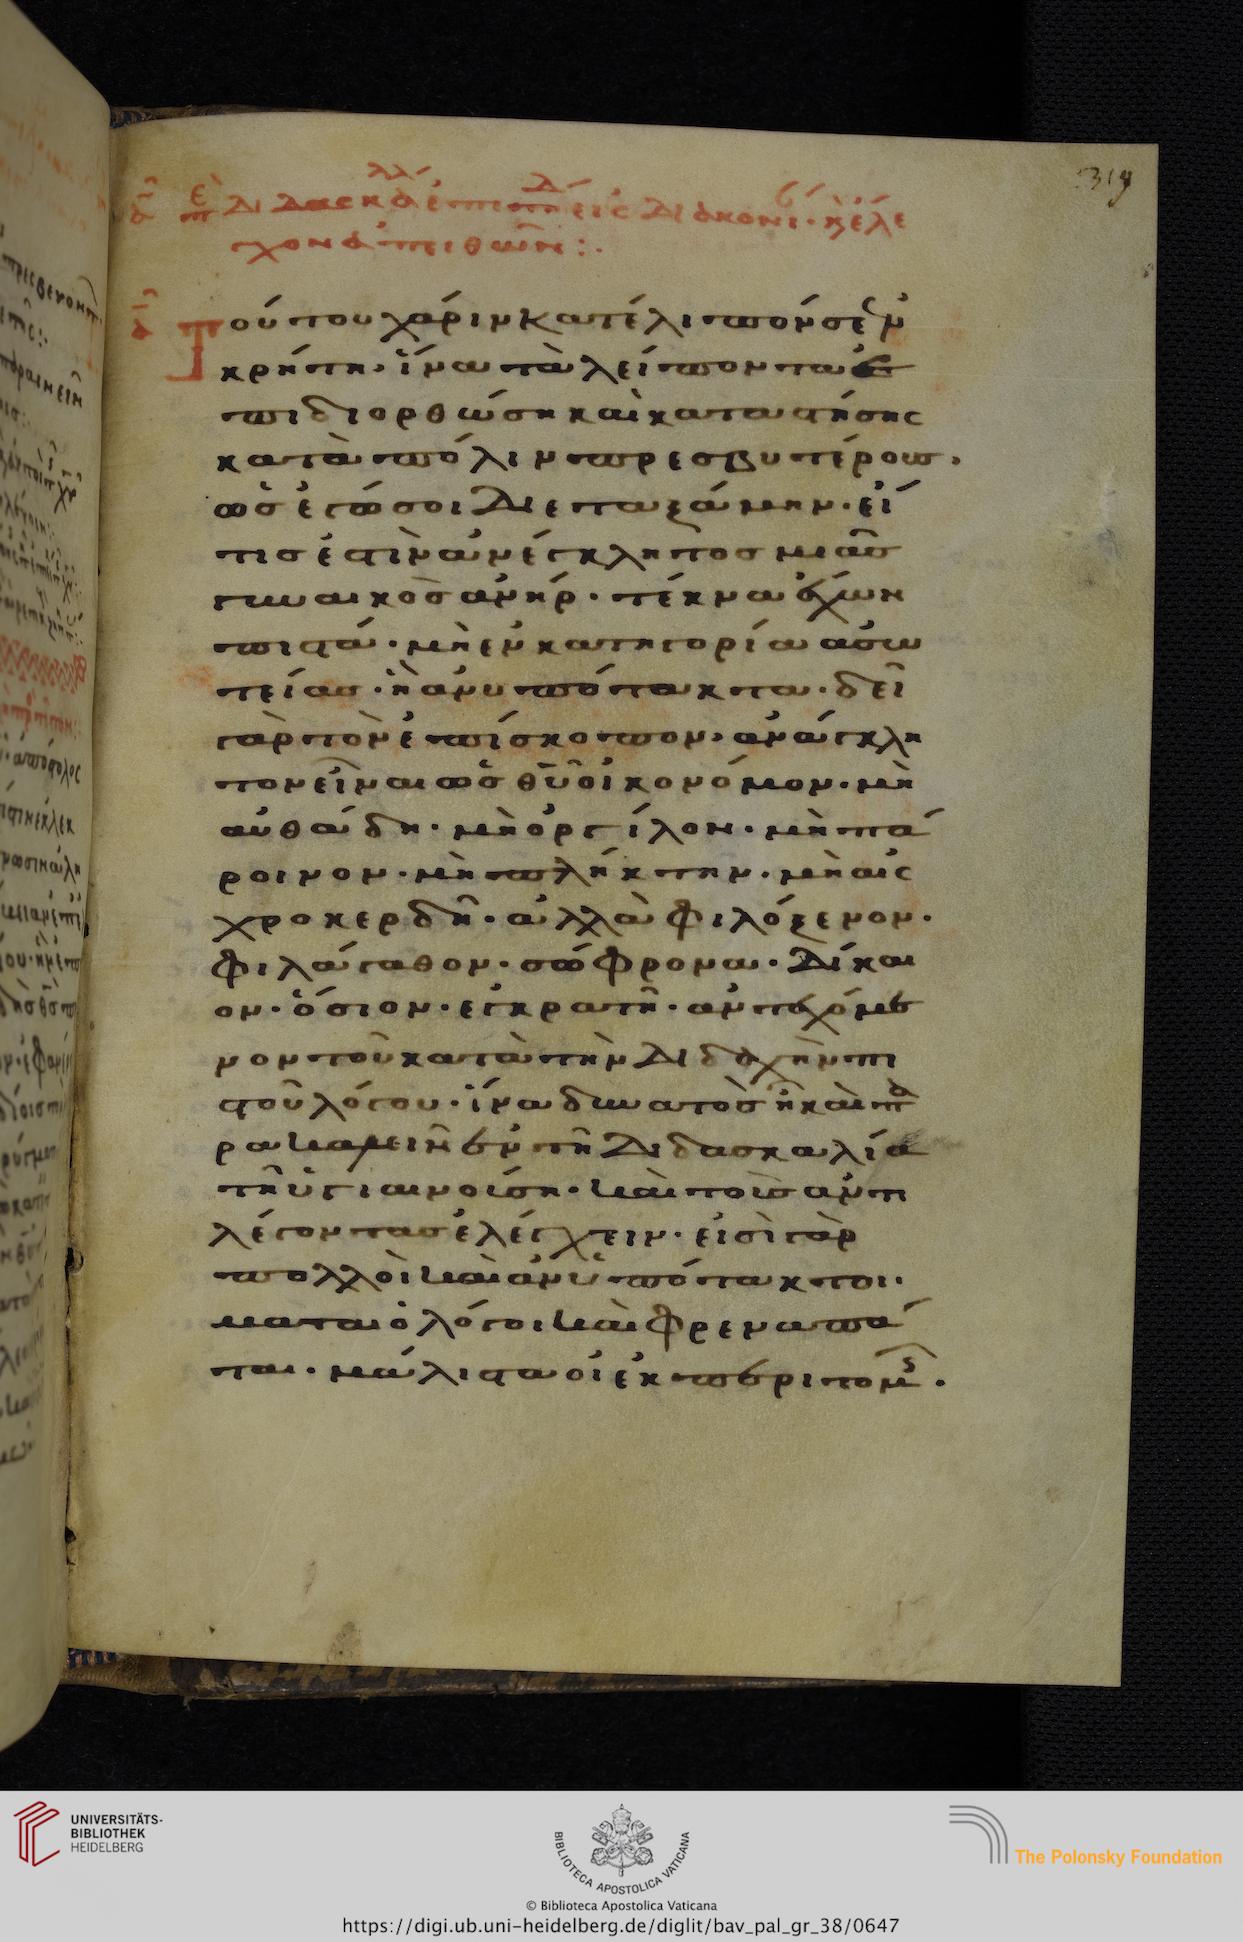 319
τούτου χάριν κατέλιπόν σε ἐν
κρήτη, ἵνα τὰ λείποντα ἐ
πιδιορθώση καὶ καταστήσης
κατὰ πόλιν πρεσβυτέρους,
ὡς ἐγώ σοι διεταξάμην. εἴ
τις ἐστὶν ἀνέγκλητος μιᾶς
γυναικὸς ἀνήρ. τέκνα ἔχων
πιστά. μὴ ἐν κατηγορία ἀσω
τείας. ἢ ἀνυπότακτα. δεῖ
γὰρ τὸν ἐπίσκοπον, ἀνέγκλη
τον εἶναι ὡς θῦ οἰκονόμον. μὴ
αὐθάδη. μὴ ὀργίλον. μὴ πά
ροινον. μὴ πλήκτην. μὴ αἰς
χροκερδῆ. ἀλλὰ φιλόξενον.
φιλάγαθον. σώφρονα. δίκαι
ον. ὅσιον. εγκρατῆ. ἀντεχόμε
νον τοῦ κατὰ τὴν διδαχὴν πι
στοῦ λόγου. ἵνα δυνατὸς ἦ καὶ πα
ρακαλεῖν ἐν τῆ διδασκαλία
τῆ ὑγιαινούση. καὶ τοὺς ἀντι
λέγοντας ἐλέγχειν. εἰσὶ γὰρ
πολλοὶ καὶ ἀνυπότακτοι.
ματαιολόγοι καὶ φρεναπά
ται. μάλιστα οἱ ἐκ περιτομῆς.
UNIVERSITÄTS-
BIBLIOTHEK
HEIDELBERG
BIBLIOTECA APOSTOLICA VATICANA
The Polonsky Foundation
© Biblioteca Apostolica Vaticana
https://digi.ub.uni-heidelberg.de/diglit/bav_pal_gr_38/0647